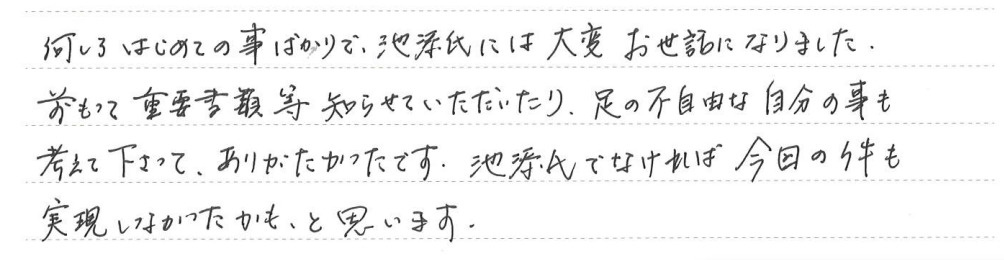 何しろはじめての事ばかりで、池添氏には大変お世話になりました.
前もって重要書類等知らせていただいたり、足の不自由な自分の事も
考えて下さって、ありがたかったです. 池添氏でなければ今回の件も
実現しなかったかも、と思います.